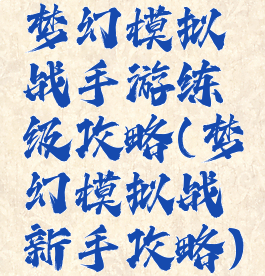 梦幻模拟
战手游练
级攻略(梦
幻模拟战
新手攻略)